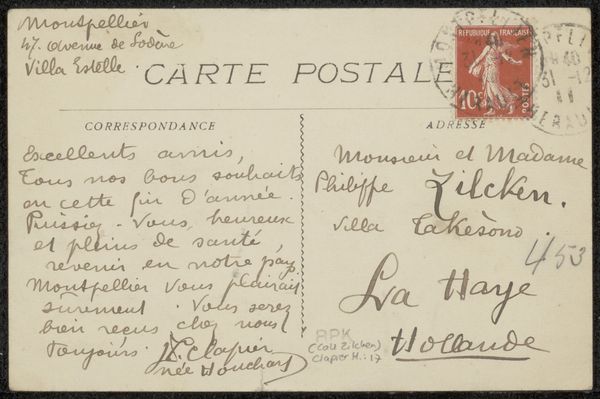 Montpellier
47. avenue de Lodève
Villa Estelle.
CARTE POSTALE
REPUBLIQUE FRANÇAISE
10c
POSTES
CORRESPONDANCE
ADRESSE
Excellents amis,
Tous nos bons souhaits
en cette fin d'année.
Puissiez-vous, heureux
et pleins de santé,
revenir en notre pays
Montpellier vous plairait
sûrement. Vous serez
bien reçus chez nous
toujours. H. Clapier
née Houchart
Monsieur et Madame
Philippe Zilcken.
Villa Takèsono.
453
La Haye
Hollande
RPK
(Coll Zilcken)
Clapier H.: 17